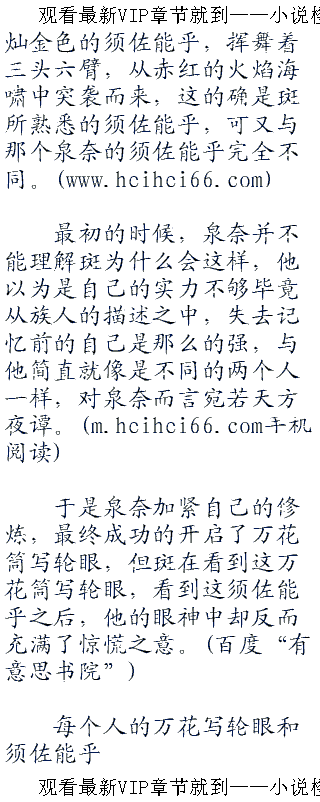 观看最新VIP章节就到——小说检
灿金色的须佐能乎，挥舞着
三头六臂，从赤红的火焰海
啸中突袭而来，这的确是斑
所熟悉的须佐能乎，可又与
那个泉奈的须佐能乎完全不
同。(www.hcihci66.com)
最初的时候，泉奈并不
能理解斑为什么会这样，他
以为是自己的实力不够毕竟
从族人的描述之中，失去记
忆前的自己是那么的强，与
他简直就像是不同的两个人
一样，对泉奈而言宛若天方
夜谭。(m.hcihci66.com手机
阅读)
于是泉奈加紧自己的修
炼，最终成功的开启了万花
筒写轮眼，但斑在看到这万
花筒写轮眼，看到这须佐能
乎之后，他的眼神中却反而
充满了惊慌之意。(百度“有
意思书院”)
每个人的万花写轮眼和
须佐能乎
观看最新VIP章节就到——小说检